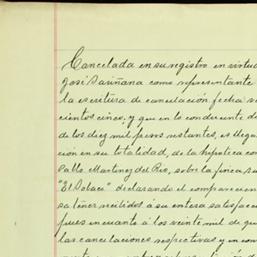 Cancelada en su registro en virtud
José Sariñana como representante
la escritura de cancelación fecha
cientos cinco, y que en lo conducente d
de los diez mil pesos restantes, es
ción en su totalidad, de la hipoteca con
Pablo Martinez del Rio, sobre la finca, su
"El Dolace" declarando el comparecen
sa tener recibidos á su entera satisfacc
pues en cuanto á los veinte mil de que
las cancelaciones respectivas y en con